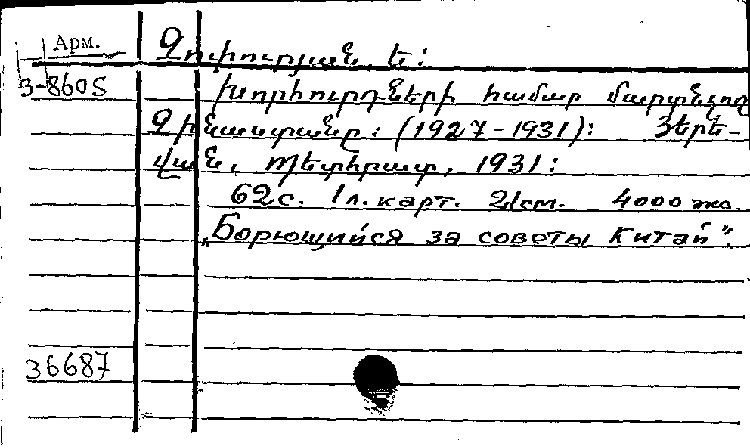 Арм.
3-8605
Զուխուրյան, Ե:
Խորհուրդների համար մարտնչող
Չինաստանը: (1927-1931): Յերե-
վան, Պետհրատ, 1931:
62с. 1л. карт. 21см. 4000 экз.
„Борющийся за советы Китай".
36687